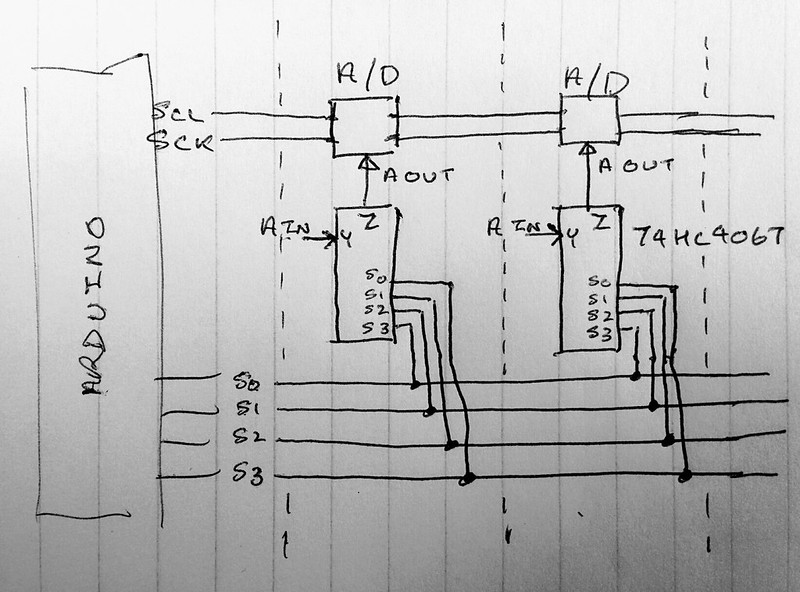 A/D
A/D
SCL
SCK
A OUT
A OUT
A IN
Y
Z
A IN
Y
Z
74HC4067
S0
S1
S2
S3
S0
S1
S2
S3
ARDUINO
S0
S1
S2
S3